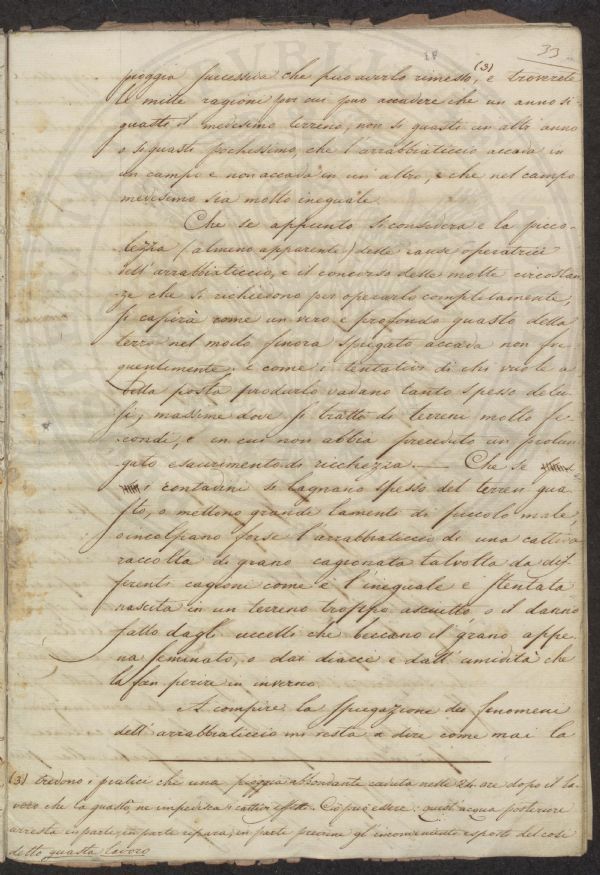 33
pioggia successiva che può averlo rimesso, (3) e troverete
le mille ragioni per cui può accadere che un anno si
guasti il medesimo terreno, non si guasti un altr' anno
o si guasti pochissimo, che l'arrabbiaticcio accada in
un campo e non accada in un altro, e che nel campo
medesimo sia molto ineguale.
Che se appunto si considera e la picco-
lezza (almeno apparente) delle cause operatrici
dell' arrabbiaticcio, e il concorso delle molte circostan
ze che si richiedono per operarlo completamente,
si capirà come un vero e profondo guasto della
terra nel modo finora spiegato accada non fre
quentemente; e come i tentativi di chi vuole a
bella posta produrlo vadano tanto spesso delu
si, massime dove si tratti di terreni molto fe
condi, e in cui non abbia preceduto un prolun
gato esaurimento di ricchezza. — Che se
i contadini si lagnano spesso del terren gua
sto, o mettono grandi lamenti di piccolo male
o incolpano forse l'arrabbiaticcio di una cattiva
raccolta di grano cagionata talvolta da dif
ferenti cagioni come è l'ineguale e stentata
nascita in un terreno troppo asciutto, o il danno
fatto dagli uccelli che beccano il grano appe
na seminato, o dai diacci e dall' umidità che
lo fan perire in inverno.
A compire la spiegazione dei fenomeni
dell' arrabbiaticcio mi resta a dire come mai la
(3) Credono i pratici che una pioggia abbondante caduta nelle 24 ore dopo il la-
voro che la guastò, ne impedisca i cattivi effetti. Ciò può essere: quest' acqua posteriore
arresta in parte, in parte ripara, in parte previene gl' inconvenienti esposti del così
detto guasta lavoro